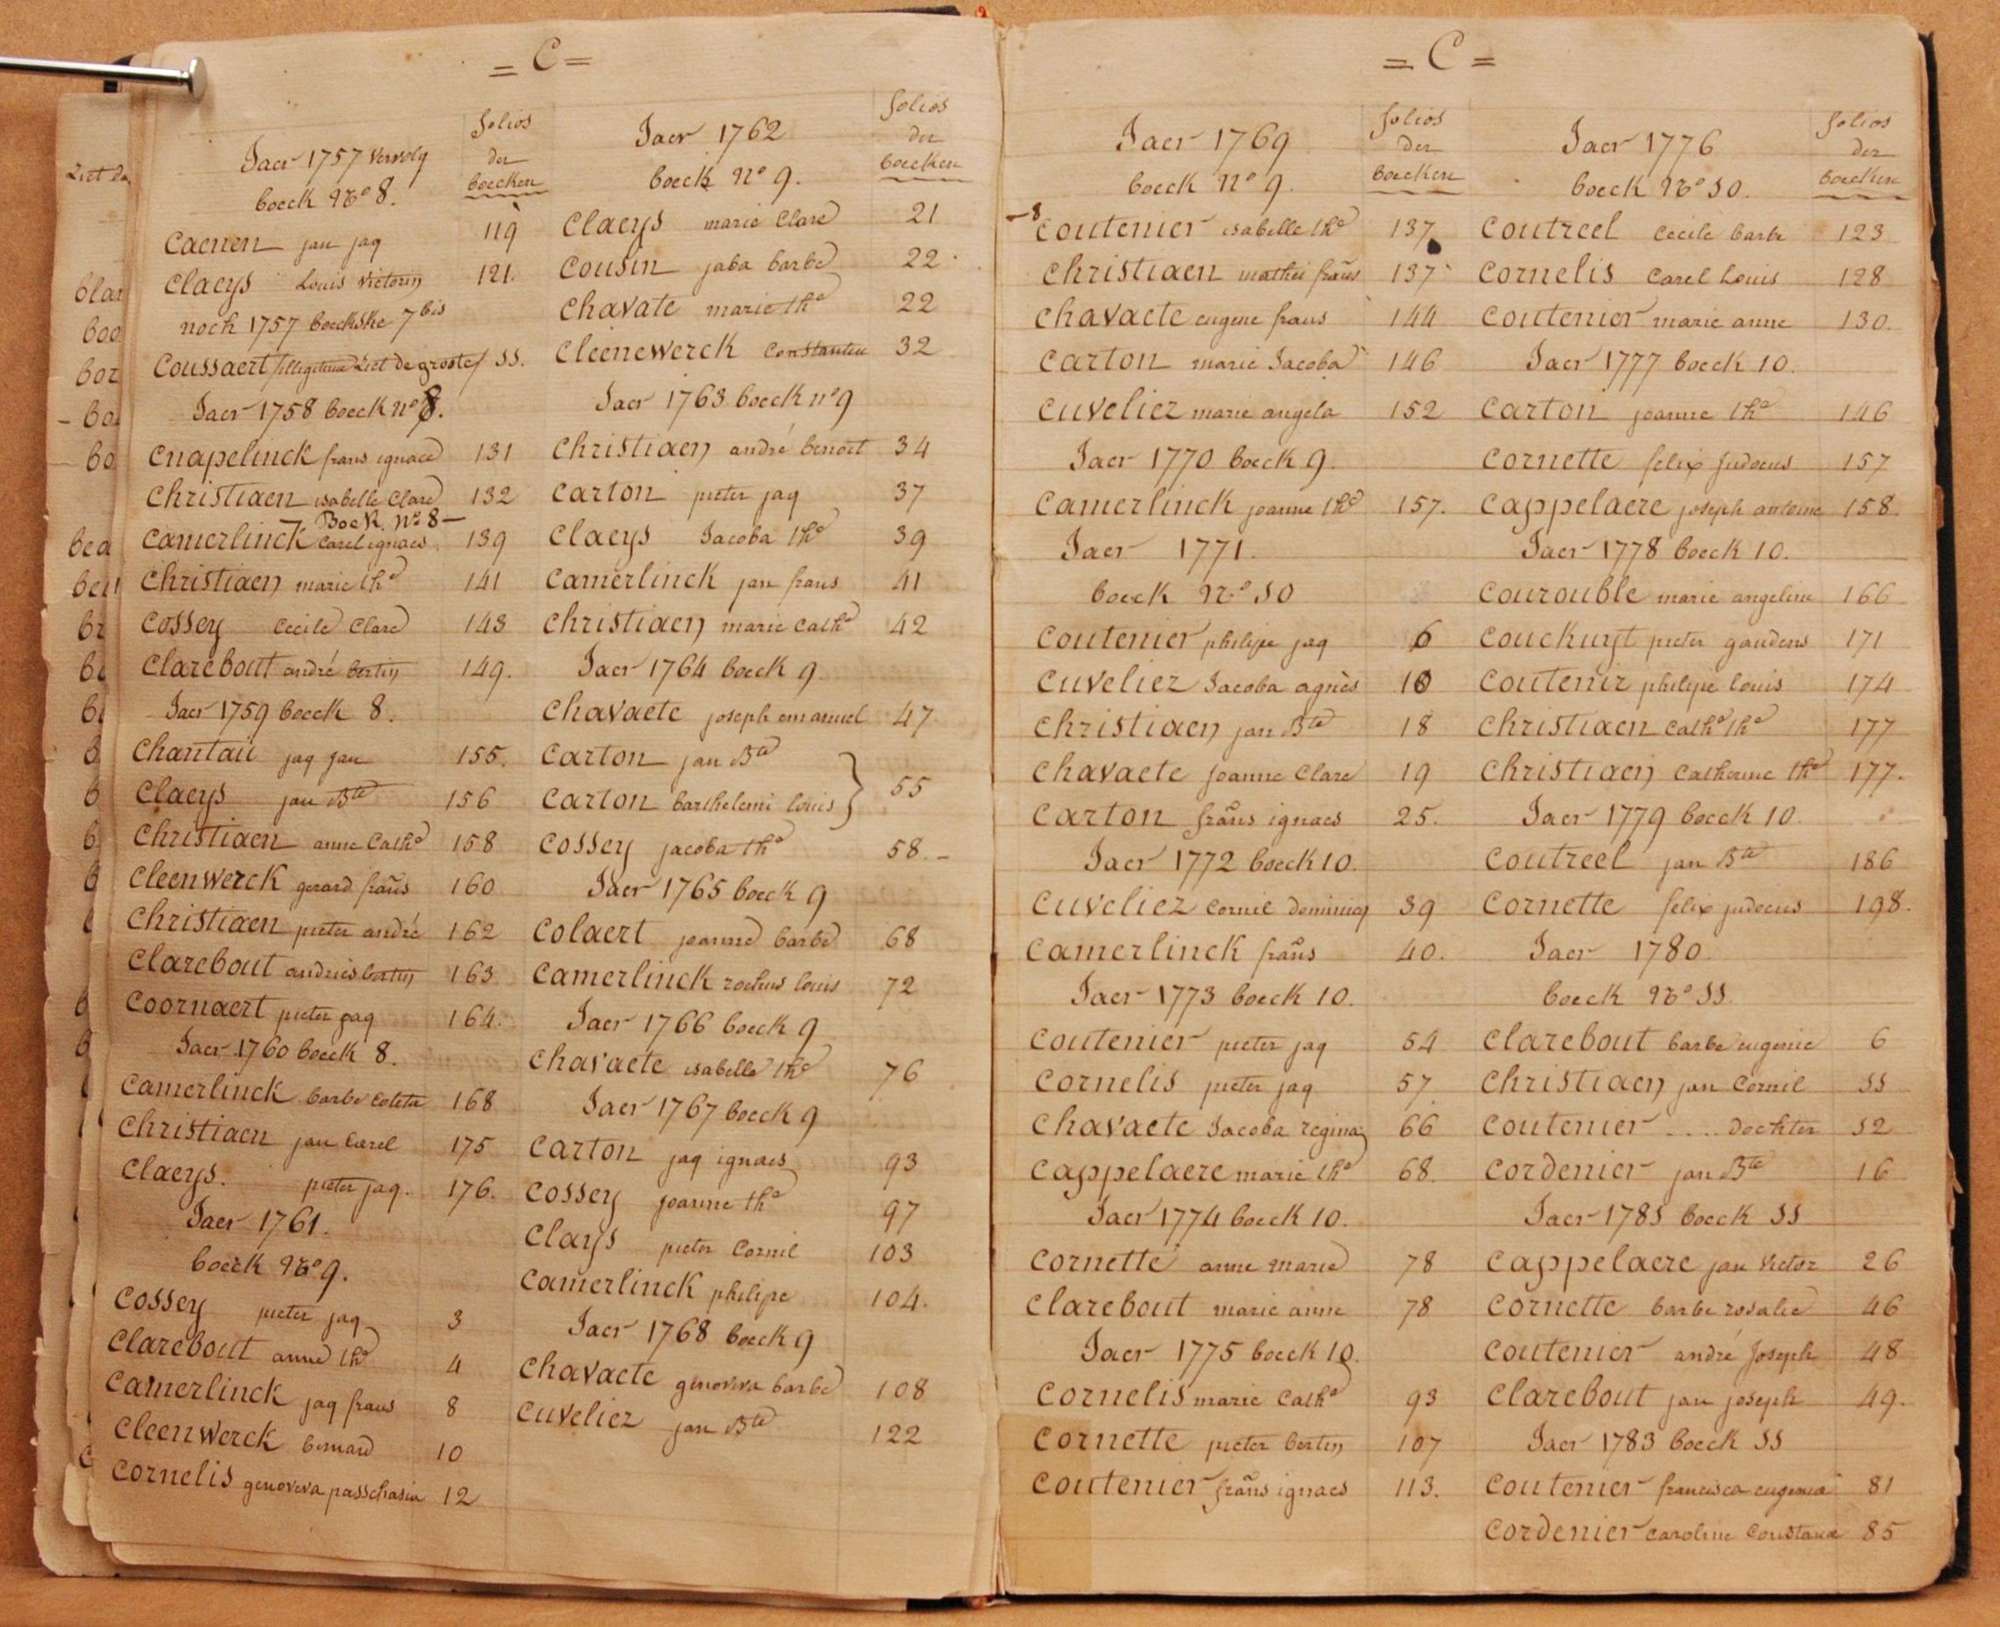 = C =
Jaer 1757 vervolg
boeck No 8.
folios
der
boecken
Caenen jan jaq 119
Claeys Louis victorin 121.
noch 1757 boeckske 7bis
Coussaert / illegitime Liet de groote / SS.
Jaer 1758 boeck no 8.
Cnapelinck frans ignace 131
Christiaen isabelle Clare 132
Boek. No 8 -
Camerlinck Carel ignaes 139
Christiaen marie the 141
Cossey Cecile Clare 143
Clarebout andré bertin 149.
Jaer 1759 boeck 8.
Chantaii jaq jan 155.
Claeys jan Bte 156
Christiaen anne Cathe 158
Cleenwerck gerard frans 160
Christiaen pieter andré 162
Clarebout andries bertin 163
Coornaert pieter jaq 164.
Jaer 1760 boeck 8.
Camerlinck barbe Colette 168
Christiaen jan Carel 175
Claeys. pieter jaq. 176.
Jaer 1761.
boeck No 9.
Cossey pieter jaq 3
Clarebout anne the 4
Camerlinck jaq frans 8
Cleenwerck bernard 10
Cornelis genoveva passchasia 12
Jaer 1762
boeck No 9.
folios
der
boecken
Claeys marie Clare 21
Cousin jaba barbe 22
Chavate marie the 22
Cleenewerck Constantin 32
Jaer 1763 boeck no 9
Christiaen andré benoit 34
Carton pieter jaq 37
Claeys Jacoba the 39
Camerlinck jan frans 41
Christiaen marie Cathe 42
Jaer 1764 boeck 9.
Chavaete joseph emanuel 47
Carton jan Bte
Carton barthelemi louis } 55
Cossey jacoba the 58. -
Jaer 1765 boeck 9
Colaert joanne barbe 68
Camerlinck rochus louis 72
Jaer 1766 boeck 9
Chavaete isabelle the 76
Jaer 1767 boeck 9
Carton jaq ignaes 93
Cossey joanne the 97
Clays pieter Cornil 103
Camerlinck philipe 104.
Jaer 1768 boeck 9
Chavaete genoveva barbe 108
Cuveliez jan Bte 122
= C =
Jaer 1769
boeck No 9.
folios
der
boecken
-8
Coutenier isabelle the 137
Christiaen mathii frans 137
Chavaete eugene frans 144
Carton marie Jacoba 146
Cuveliez marie angela 152
Jaer 1770 boeck 9.
Camerlinck joanne the 157.
Jaer 1771.
boeck No 10
Coutenier philipe jaq 6
Cuveliez Jacoba agnès 10
Christiaen jan Bte 18
Chavaete Joanne Clare 19
Carton frans ignaes 25.
Jaer 1772 boeck 10.
Cuveliez Cornil dominiq 39
Camerlinck frans 40.
Jaer 1773 boeck 10.
Coutenier pieter jaq 54
Cornelis pieter jaq 57
Chavaete Jacoba regina 66
Cappelaere marie the 68.
Jaer 1774 boeck 10.
Cornette anne marie 78
Clarebout marie anne 78
Jaer 1775 boeck 10.
Cornelis marie Cathe 93
Cornette pieter bertin 107
Coutenier frans ignaes 113.
Jaer 1776
boeck No 10.
folios
der
boecken
Coutreel Cecile barbe 123
Cornelis Carel Louis 128
Coutenier marie anne 130.
Jaer 1777 boeck 10.
Carton joanne the 146
Cornette felix Judocus 157
Cappelaere joseph antoine 158.
Jaer 1778 boeck 10.
Courouble marie angeline 166
Couckuyt pieter gaudens 171
Coutenir philipe louis 174
Christiaen Cathe the 177
Christiaen Catherine the 177.
Jaer 1779 boeck 10.
Coutreel jan Bte 186
Cornette felix judocus 198.
Jaer 1780
boeck No 11
Clarebout barbe eugenie 6
Christiaen jan Cornil 11
Coutenier .... dochter 12
Cordenier jan Bte 16
Jaer 1781 boeck 11
Cappelaere jan Victor 26
Cornette barbe rosalie 46
Coutenier andré Joseph 48
Clarebout jan joseph 49.
Jaer 1783 boeck 11
Coutenier francisca eugenia 81
Cordenier Caroline Constance 85